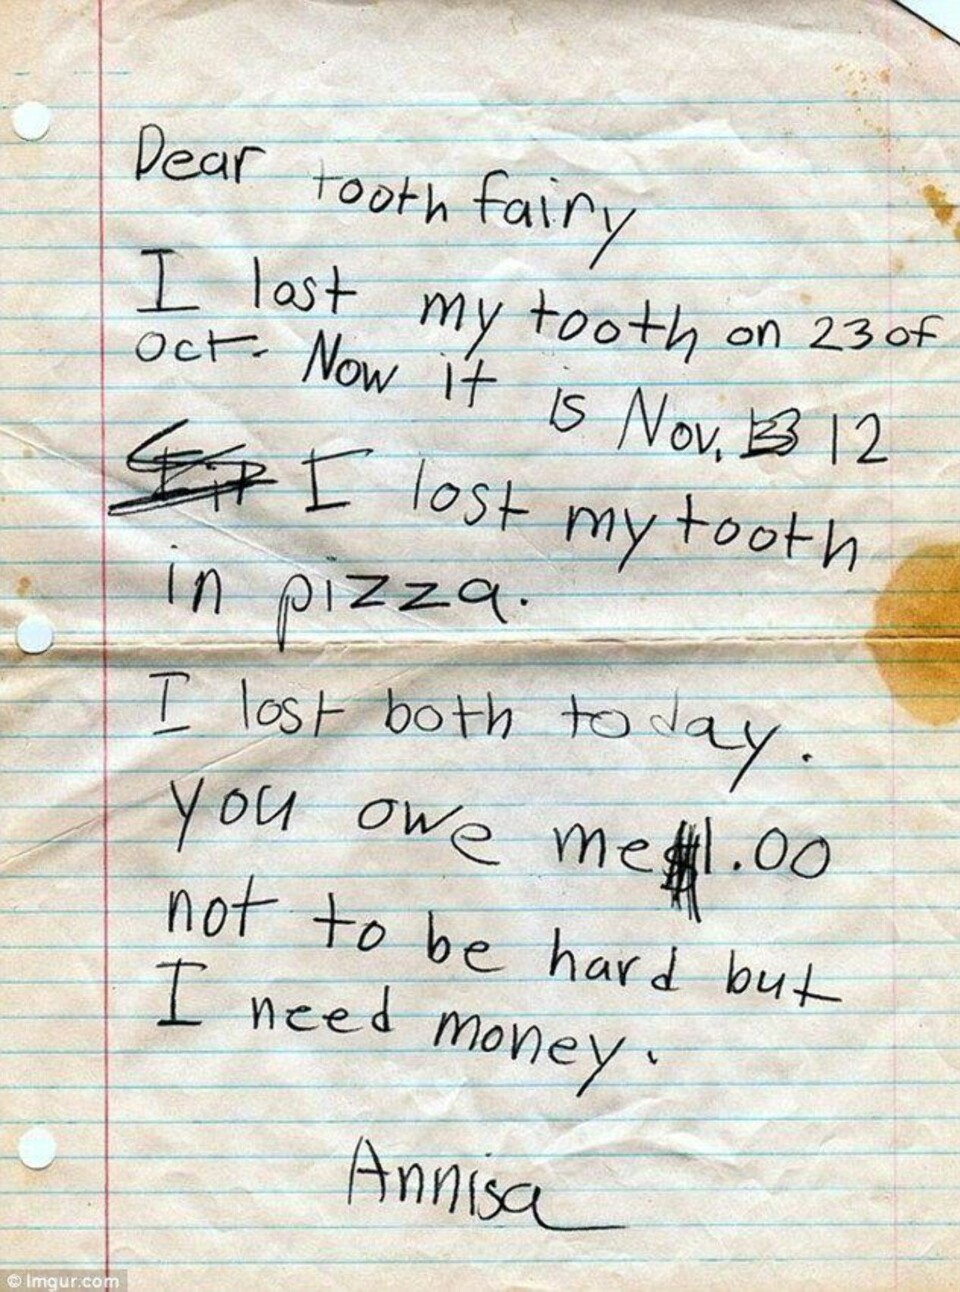 Dear tooth fairy
I lost my tooth on 23 of
oct. Now it is Nov. 12
I lost my tooth
in pizza.
I lost both today.
you owe me $1.00
not to be hard but
I need money.
Annisa
© Imgur.com